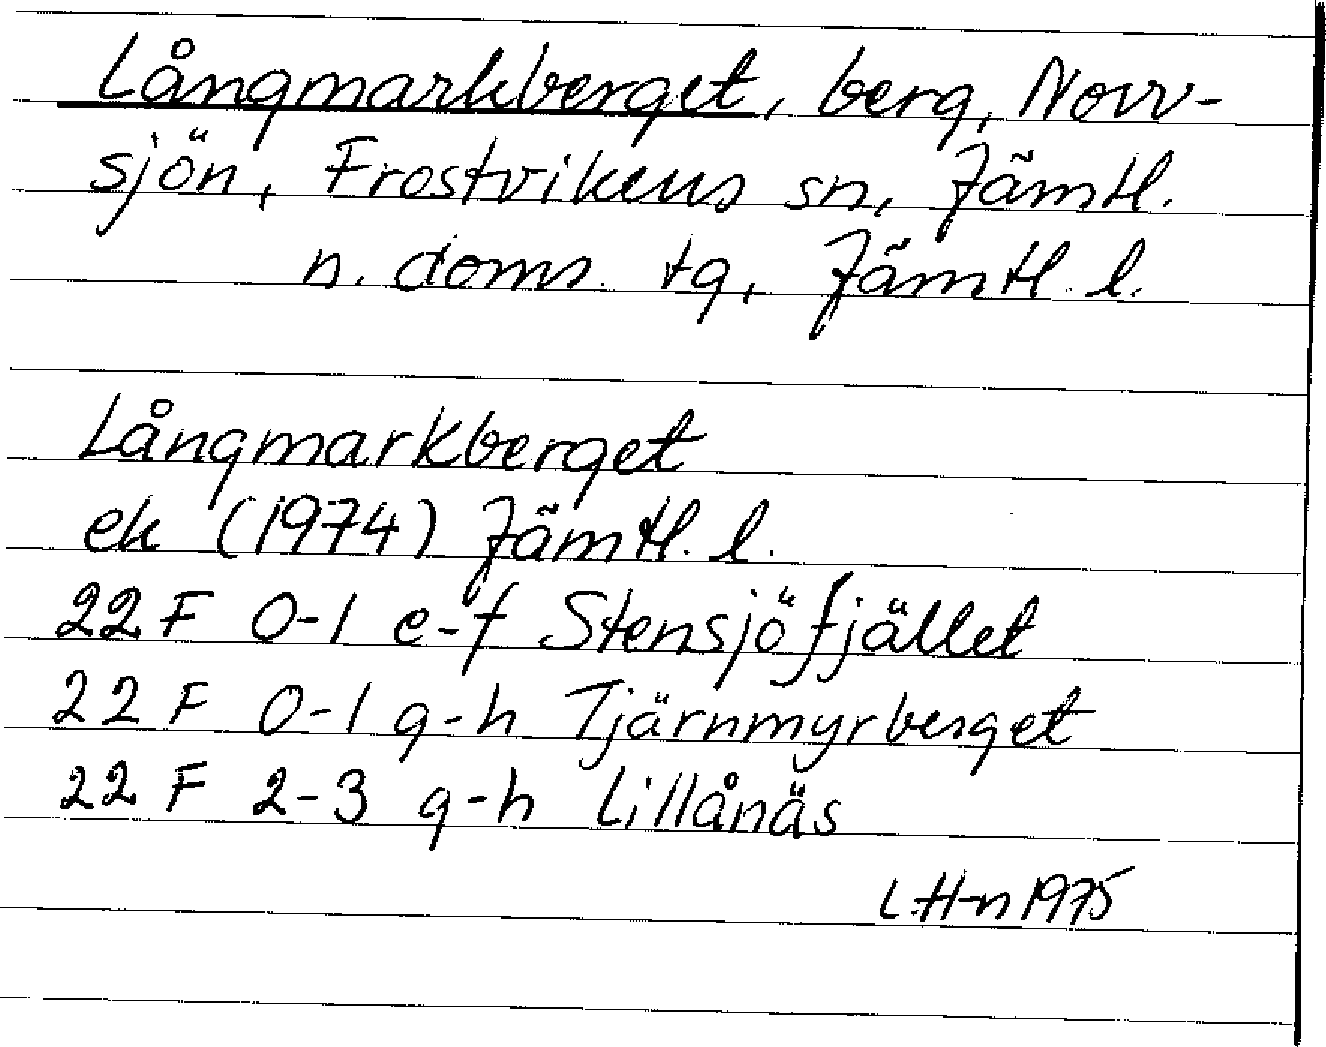 Långmarkberget, berg, Norr-
sjön, Frostvikens sn, Jämtl.
n. doms. tg, Jämtl. l.
Långmarkberget
ek (1974) Jämtl. l.
22 F 0-1 e-f Stensjöfjället
22 F 0-1 g-h Tjärnmyrberget
22 F 2-3 g-h Lillånäs
L.H-n 1975